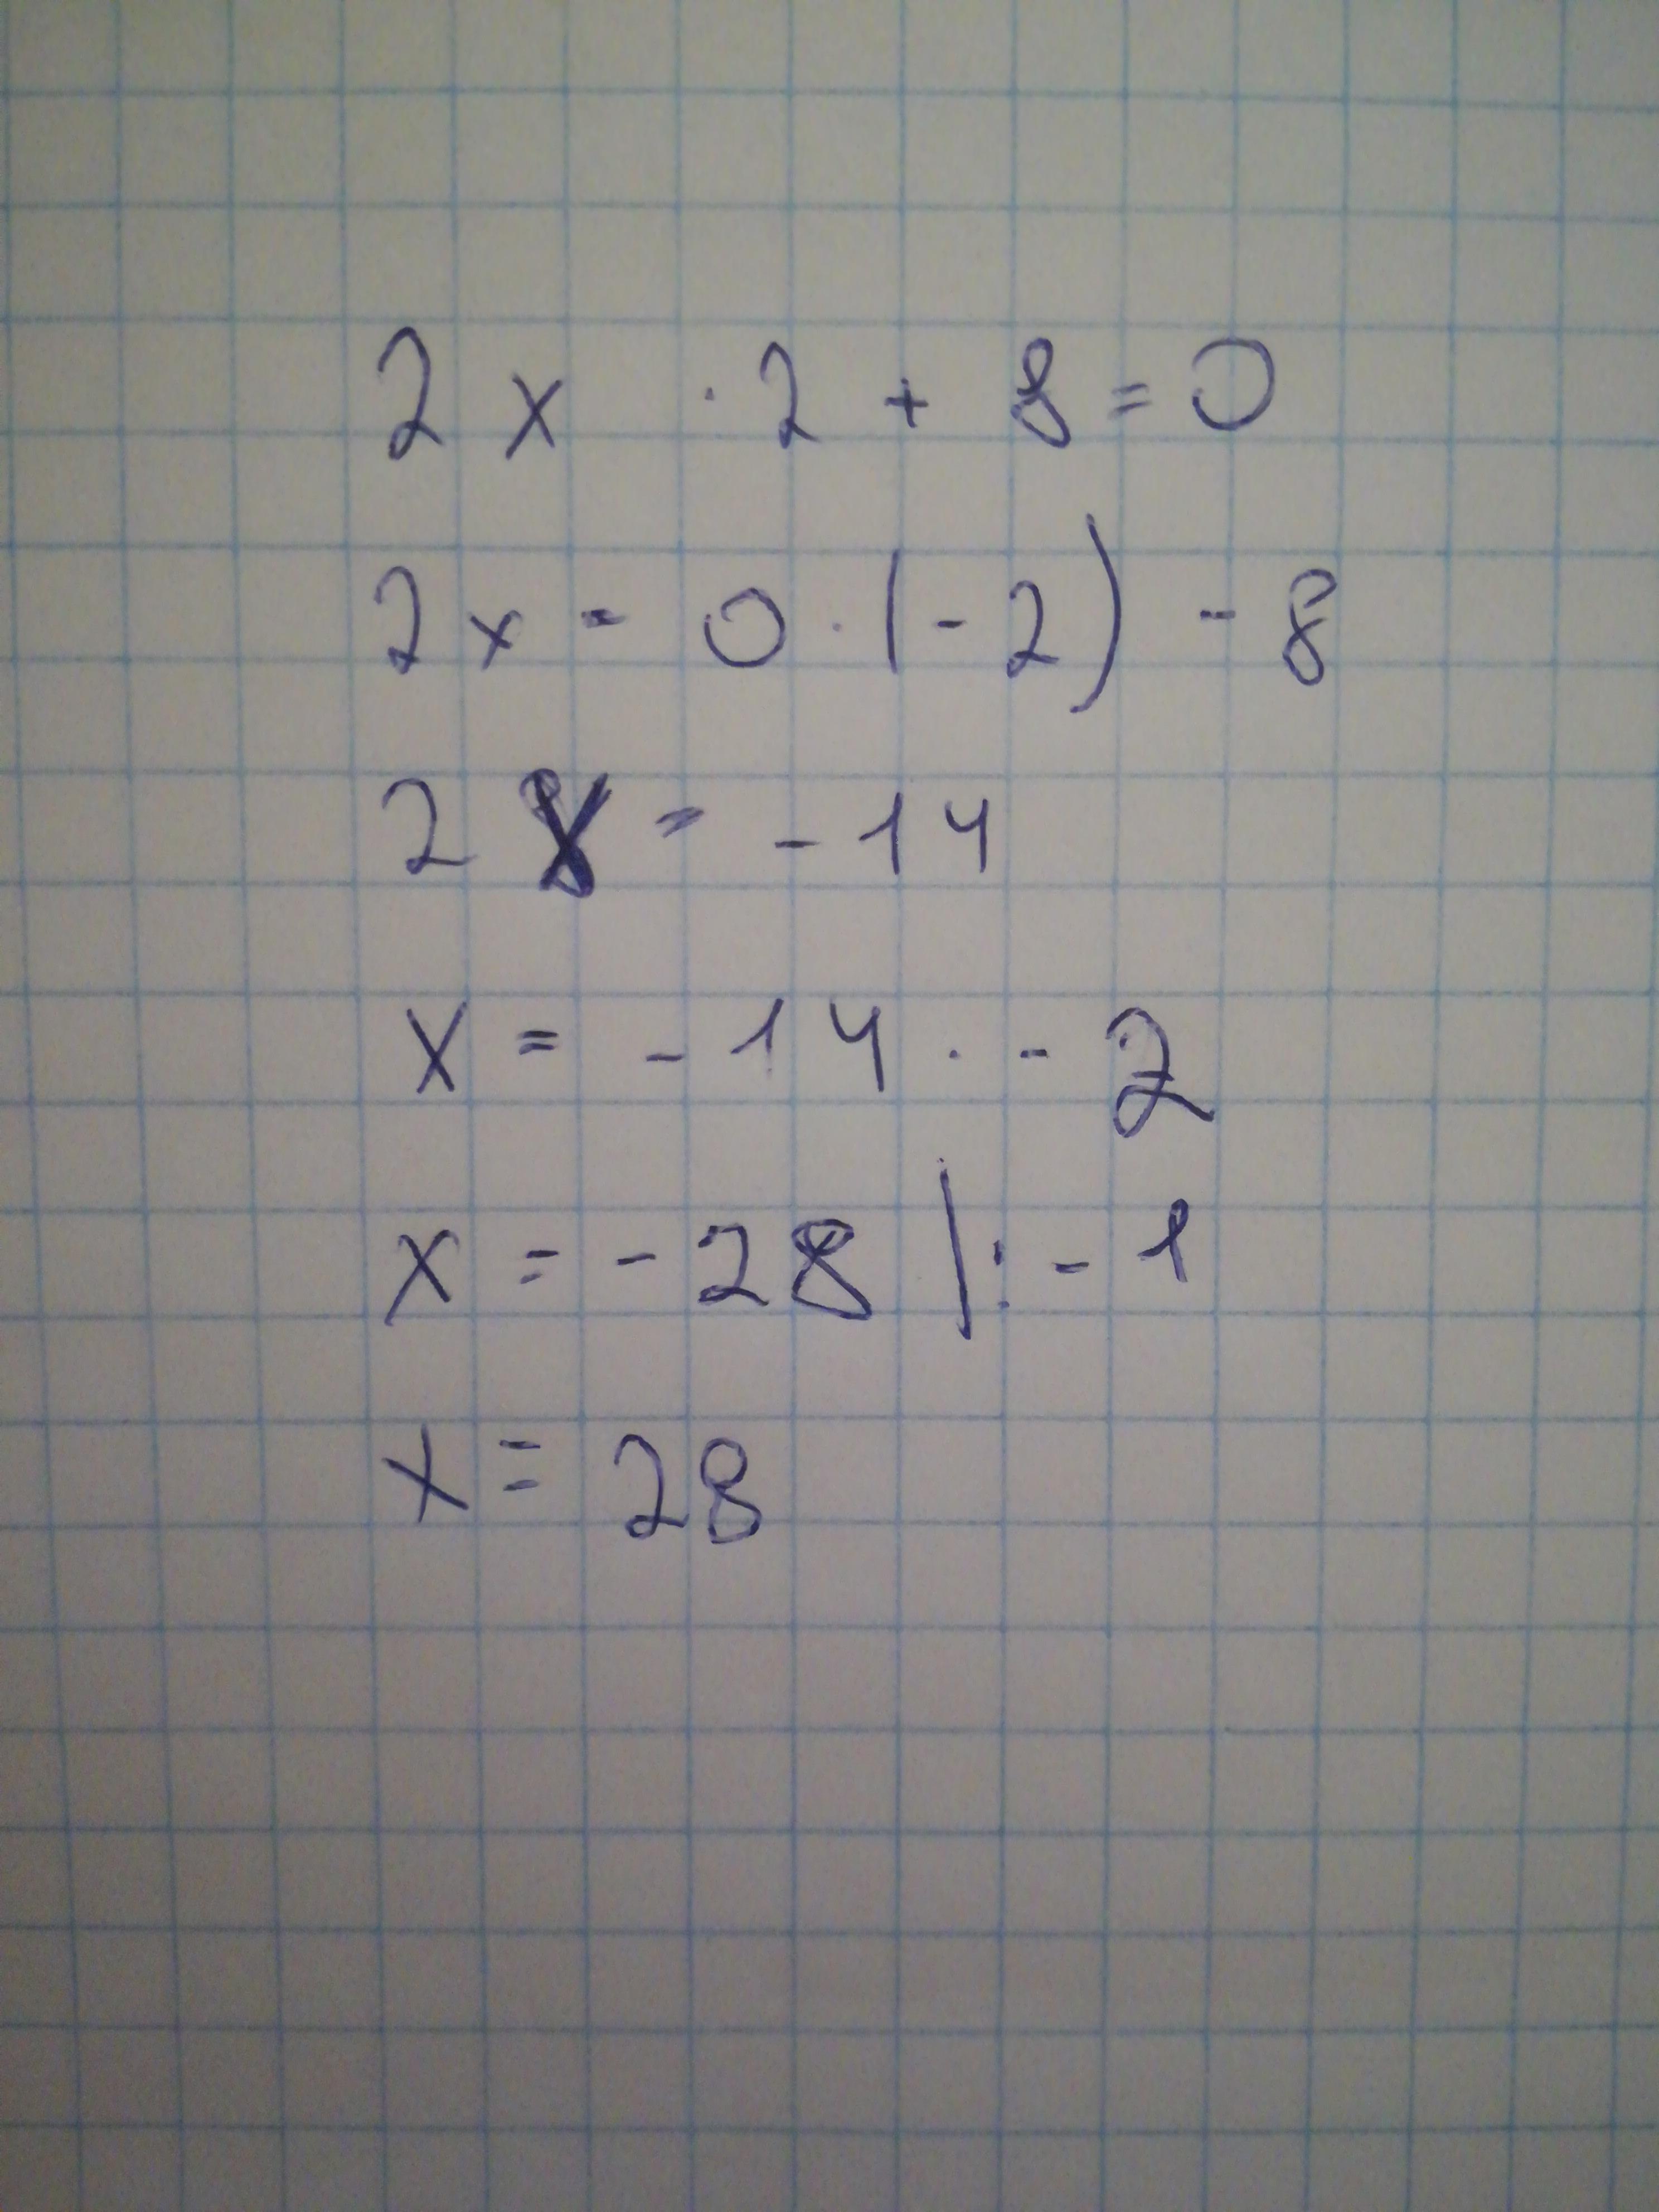 2x · 2 + 8 = 0
2x = 0 · (-2) - 8
2x = -14
x = -14 · -2
x = -28 |: -1
x = 28